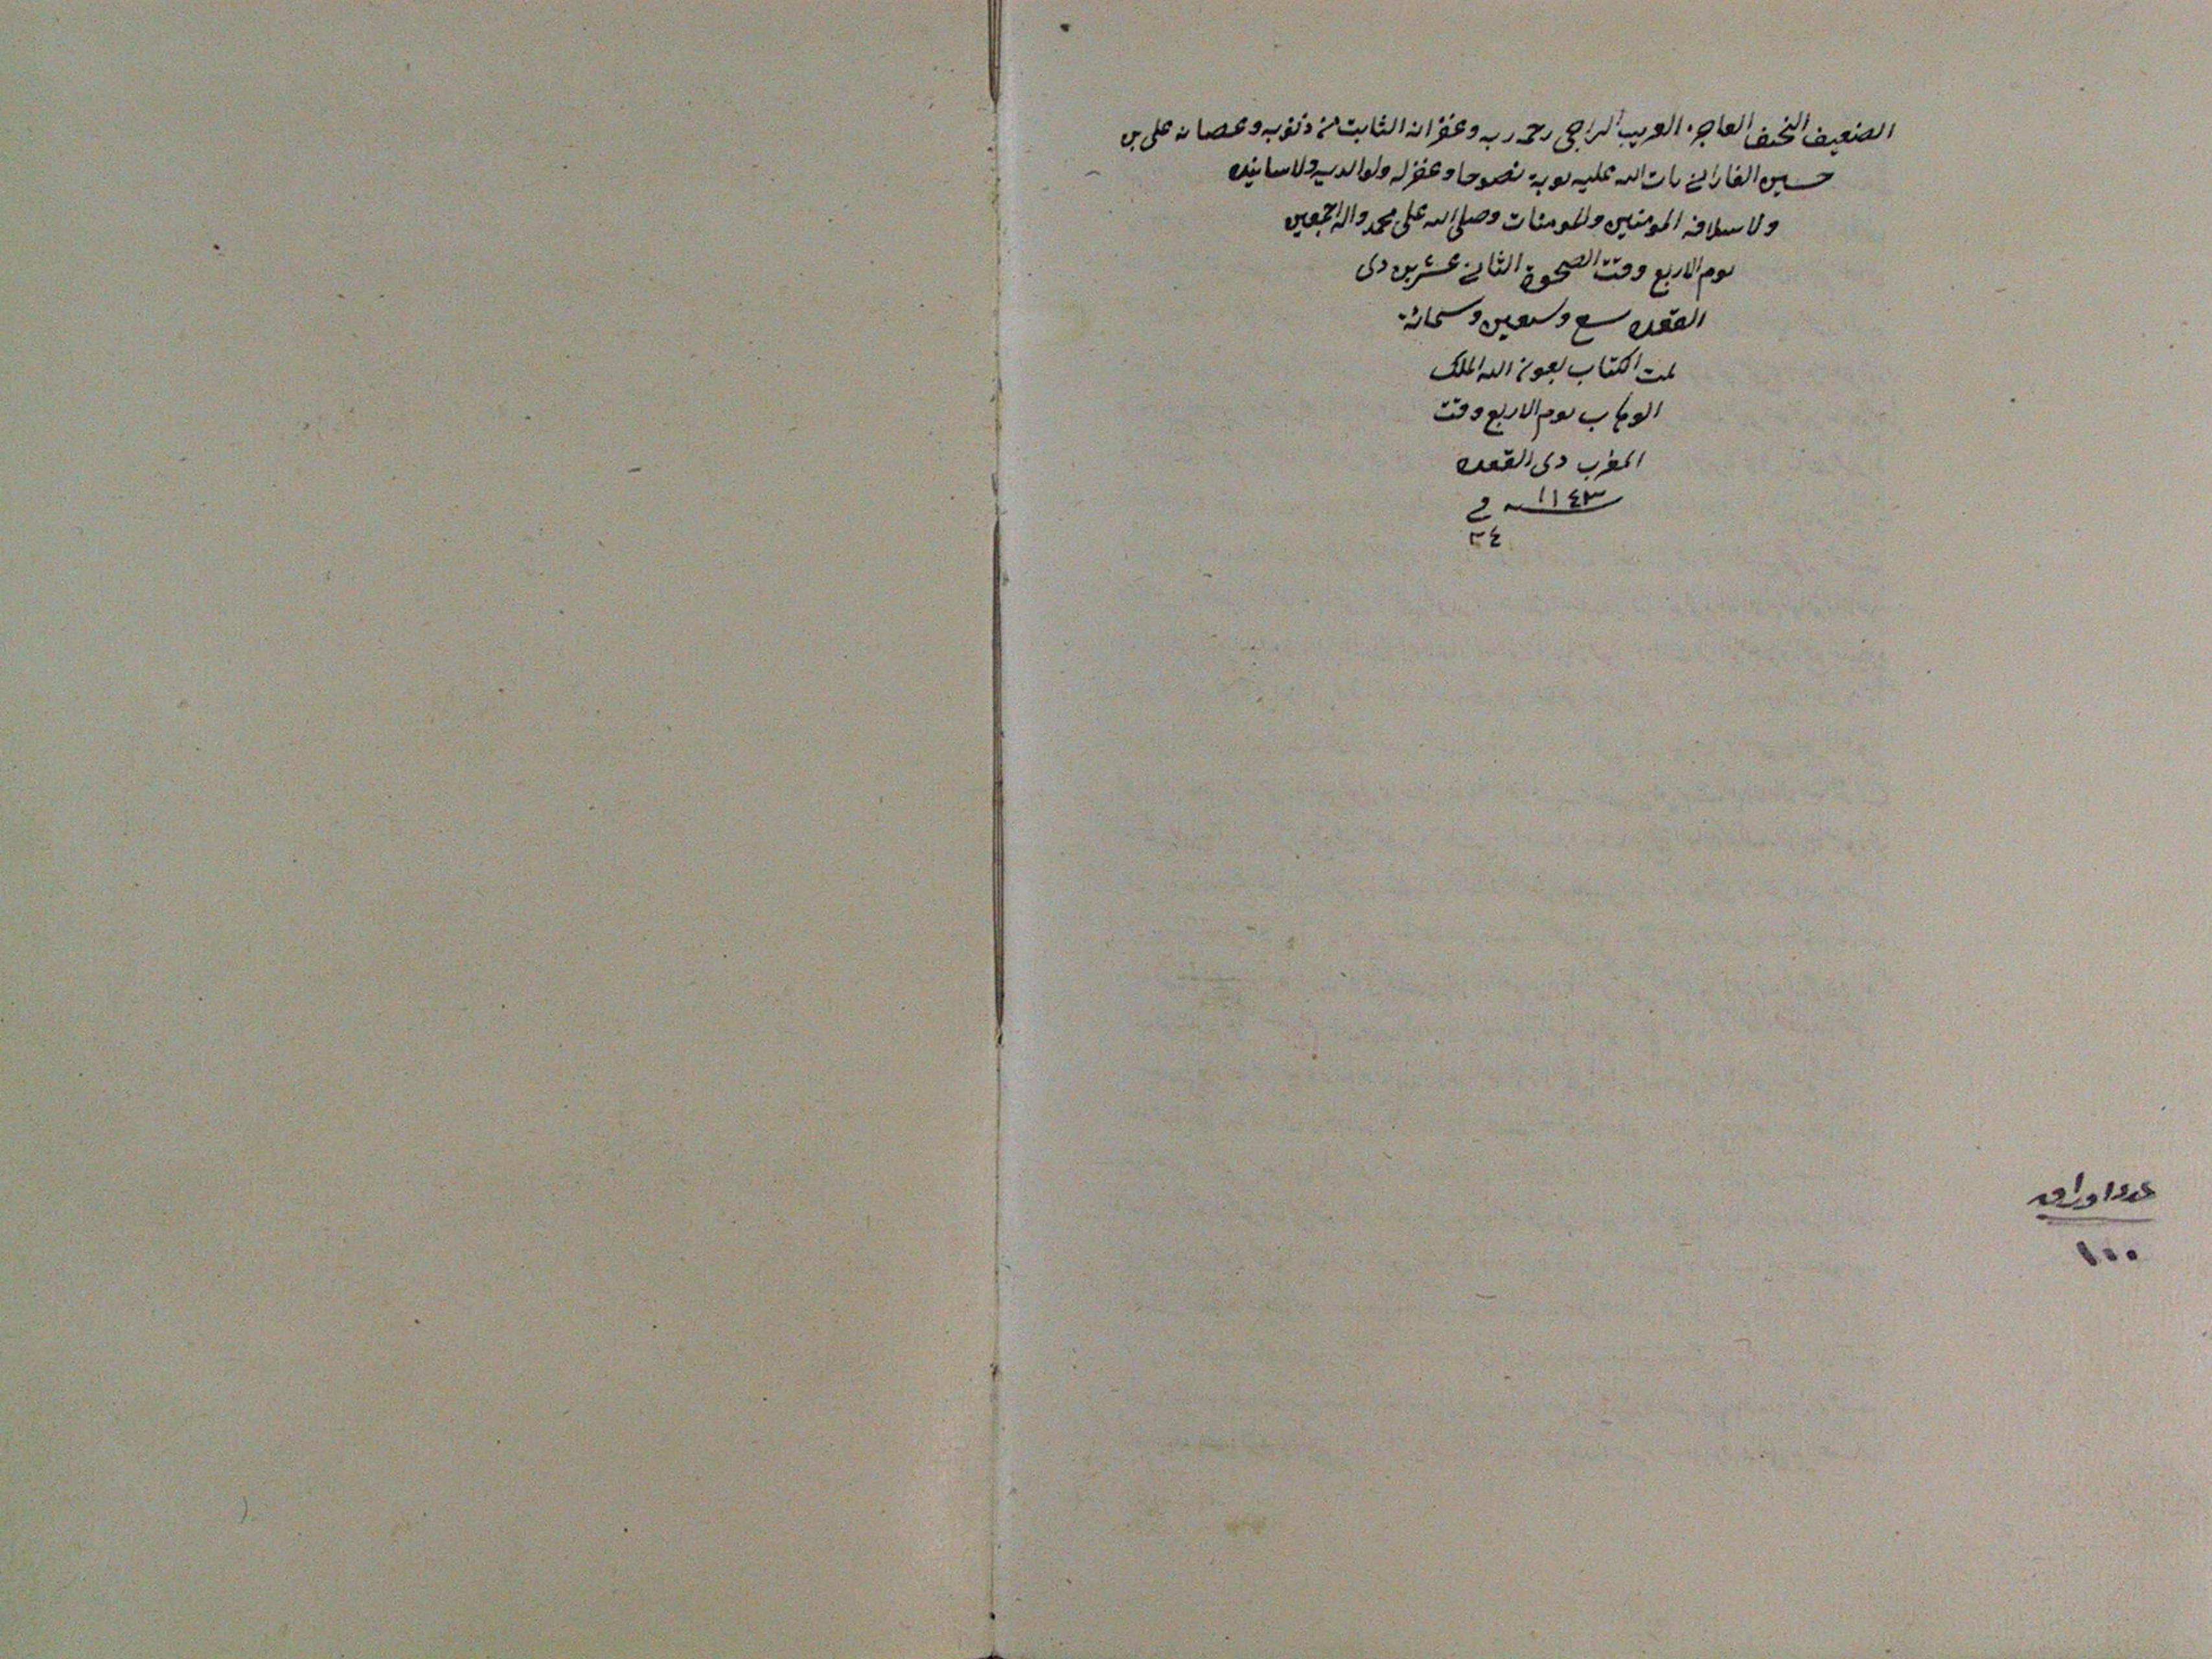 الضعيف النحيف العاجز الغريب الراجى رحمة ربه وغفرانه التائب من ذنوبه وعصيانه على بن
حسين الفارانى تاب الله عليه توبة نصوحا وغفر له ولوالديه ولاساتيذه
ولاسلافه المومنين والمومنات وصلى الله على محمد واله اجمعين
يوم الاربع وقت الضحوة الثانى عشرين ذى
القعده سبع وسبعين وستمائة
تمت الكتاب بعون الله الملك
الوهاب يوم الاربع وقت
المغرب ذى القعده
١١٤٣ سنه فى
٢٤
عدد اوراق
١٠٠